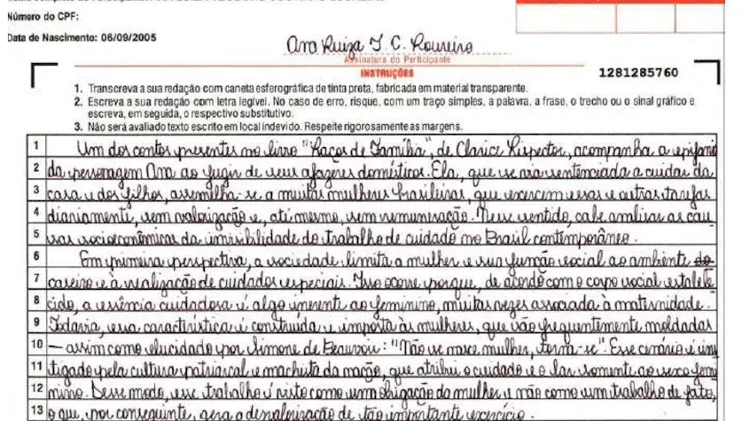 Número do CPF:
Data de Nascimento: 06/09/2005
Ana Luiza T. C. Loureiro
Assinatura do Participante
INSTRUÇÕES
1281285760
1. Transcreva a sua redação com caneta esferográfica de tinta preta, fabricada em material transparente.
2. Escreva a sua redação com letra legível. No caso de erro, risque, com um traço simples, a palavra, a frase, o trecho ou o sinal gráfico e
escreva, em seguida, o respectivo substitutivo.
3. Não será avaliado texto escrito em local indevido. Respeite rigorosamente as margens.
1 Um dos contos presentes no livro "Laços de Família", de Clarice Lispector, acompanha a epifania
2 da personagem Ana ao fugir de seus afazeres domésticos. Ela, que se via sentenciada a cuidar da
3 casa e dos filhos, assemelha-se a muitas mulheres brasileiras, que exercem essas e outras tarefas
4 diariamente, sem valorização e, até mesmo, sem remuneração. Nesse sentido, cabe analisar as cau
5 sas socioeconômicas da invisibilidade do trabalho de cuidado no Brasil contemporâneo.
6 Em primeira perspectiva, a sociedade limita a mulher e sua função social ao ambiente do
7 caseiro e à realização de cuidados especiais. Isso ocorre porque, de acordo com o corpo social estabele
8 cido, a essência cuidadora é algo inerente ao feminino, muitas vezes associada à maternidade.
9 Todavia, essa característica é construída e imposta às mulheres, que são frequentemente moldadas
10 — assim como elucidado por Simone de Beauvoir: "Não se nasce mulher, torna-se". Esse cenário é ins
11 tigado pela cultura patriarcal e machista da nação, que atribui o cuidado e o lar somente ao sexo femi
12 nino. Desse modo, esse trabalho é visto como uma obrigação da mulher e não como um trabalho de fato,
13 o que, por conseguinte, gera a desvalorização de tão importante exercício.